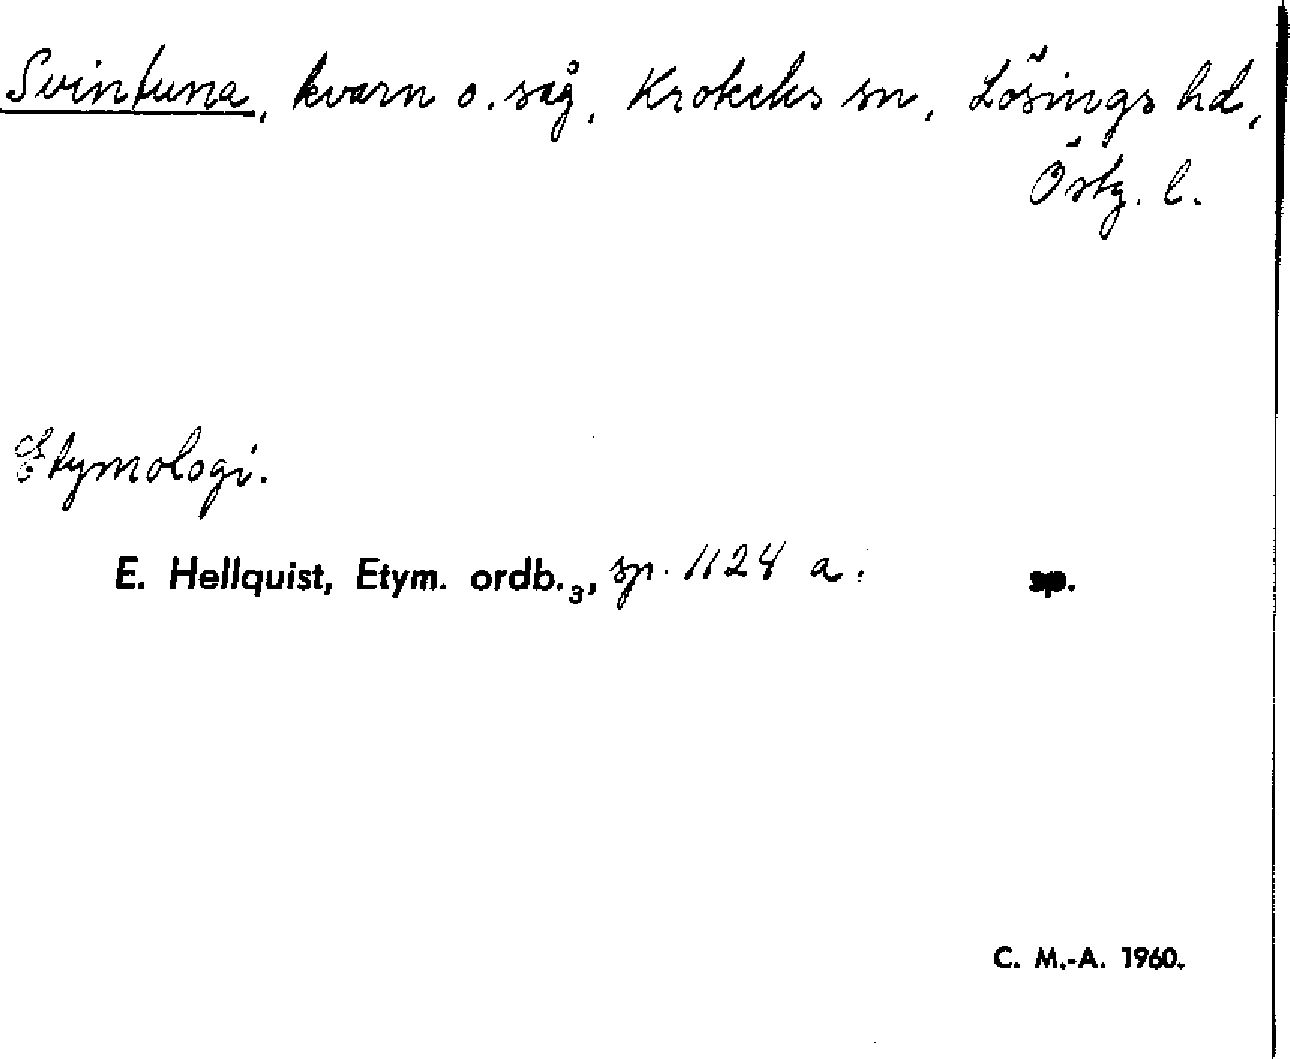 Svintuna, kvarn o. såg, Krokeks sn, Lösings hd,
Östg. l.
Etymologi.
E. Hellquist, Etym. ordb.3, sp. 1124 a. sp.
C. M.-A. 1960.